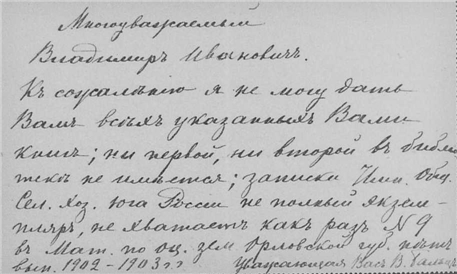 Многоуважаемый
Владимиръ Ивановичъ.
Къ сожалѣнію я не могу дать
Вамъ всѣхъ указанныхъ Вами
книгъ; ни первой, ни второй в библіо
текѣ не имѣется; записки Имп. Общ.
Сел. Хоз. юга Россіи не полный экзем-
пляръ, не хватаетъ какъ разъ № 9
въ Мат. по оц. зем Орловской губ. нѣтъ
вып. 1902 – 1903 г г уважающая Васъ В.